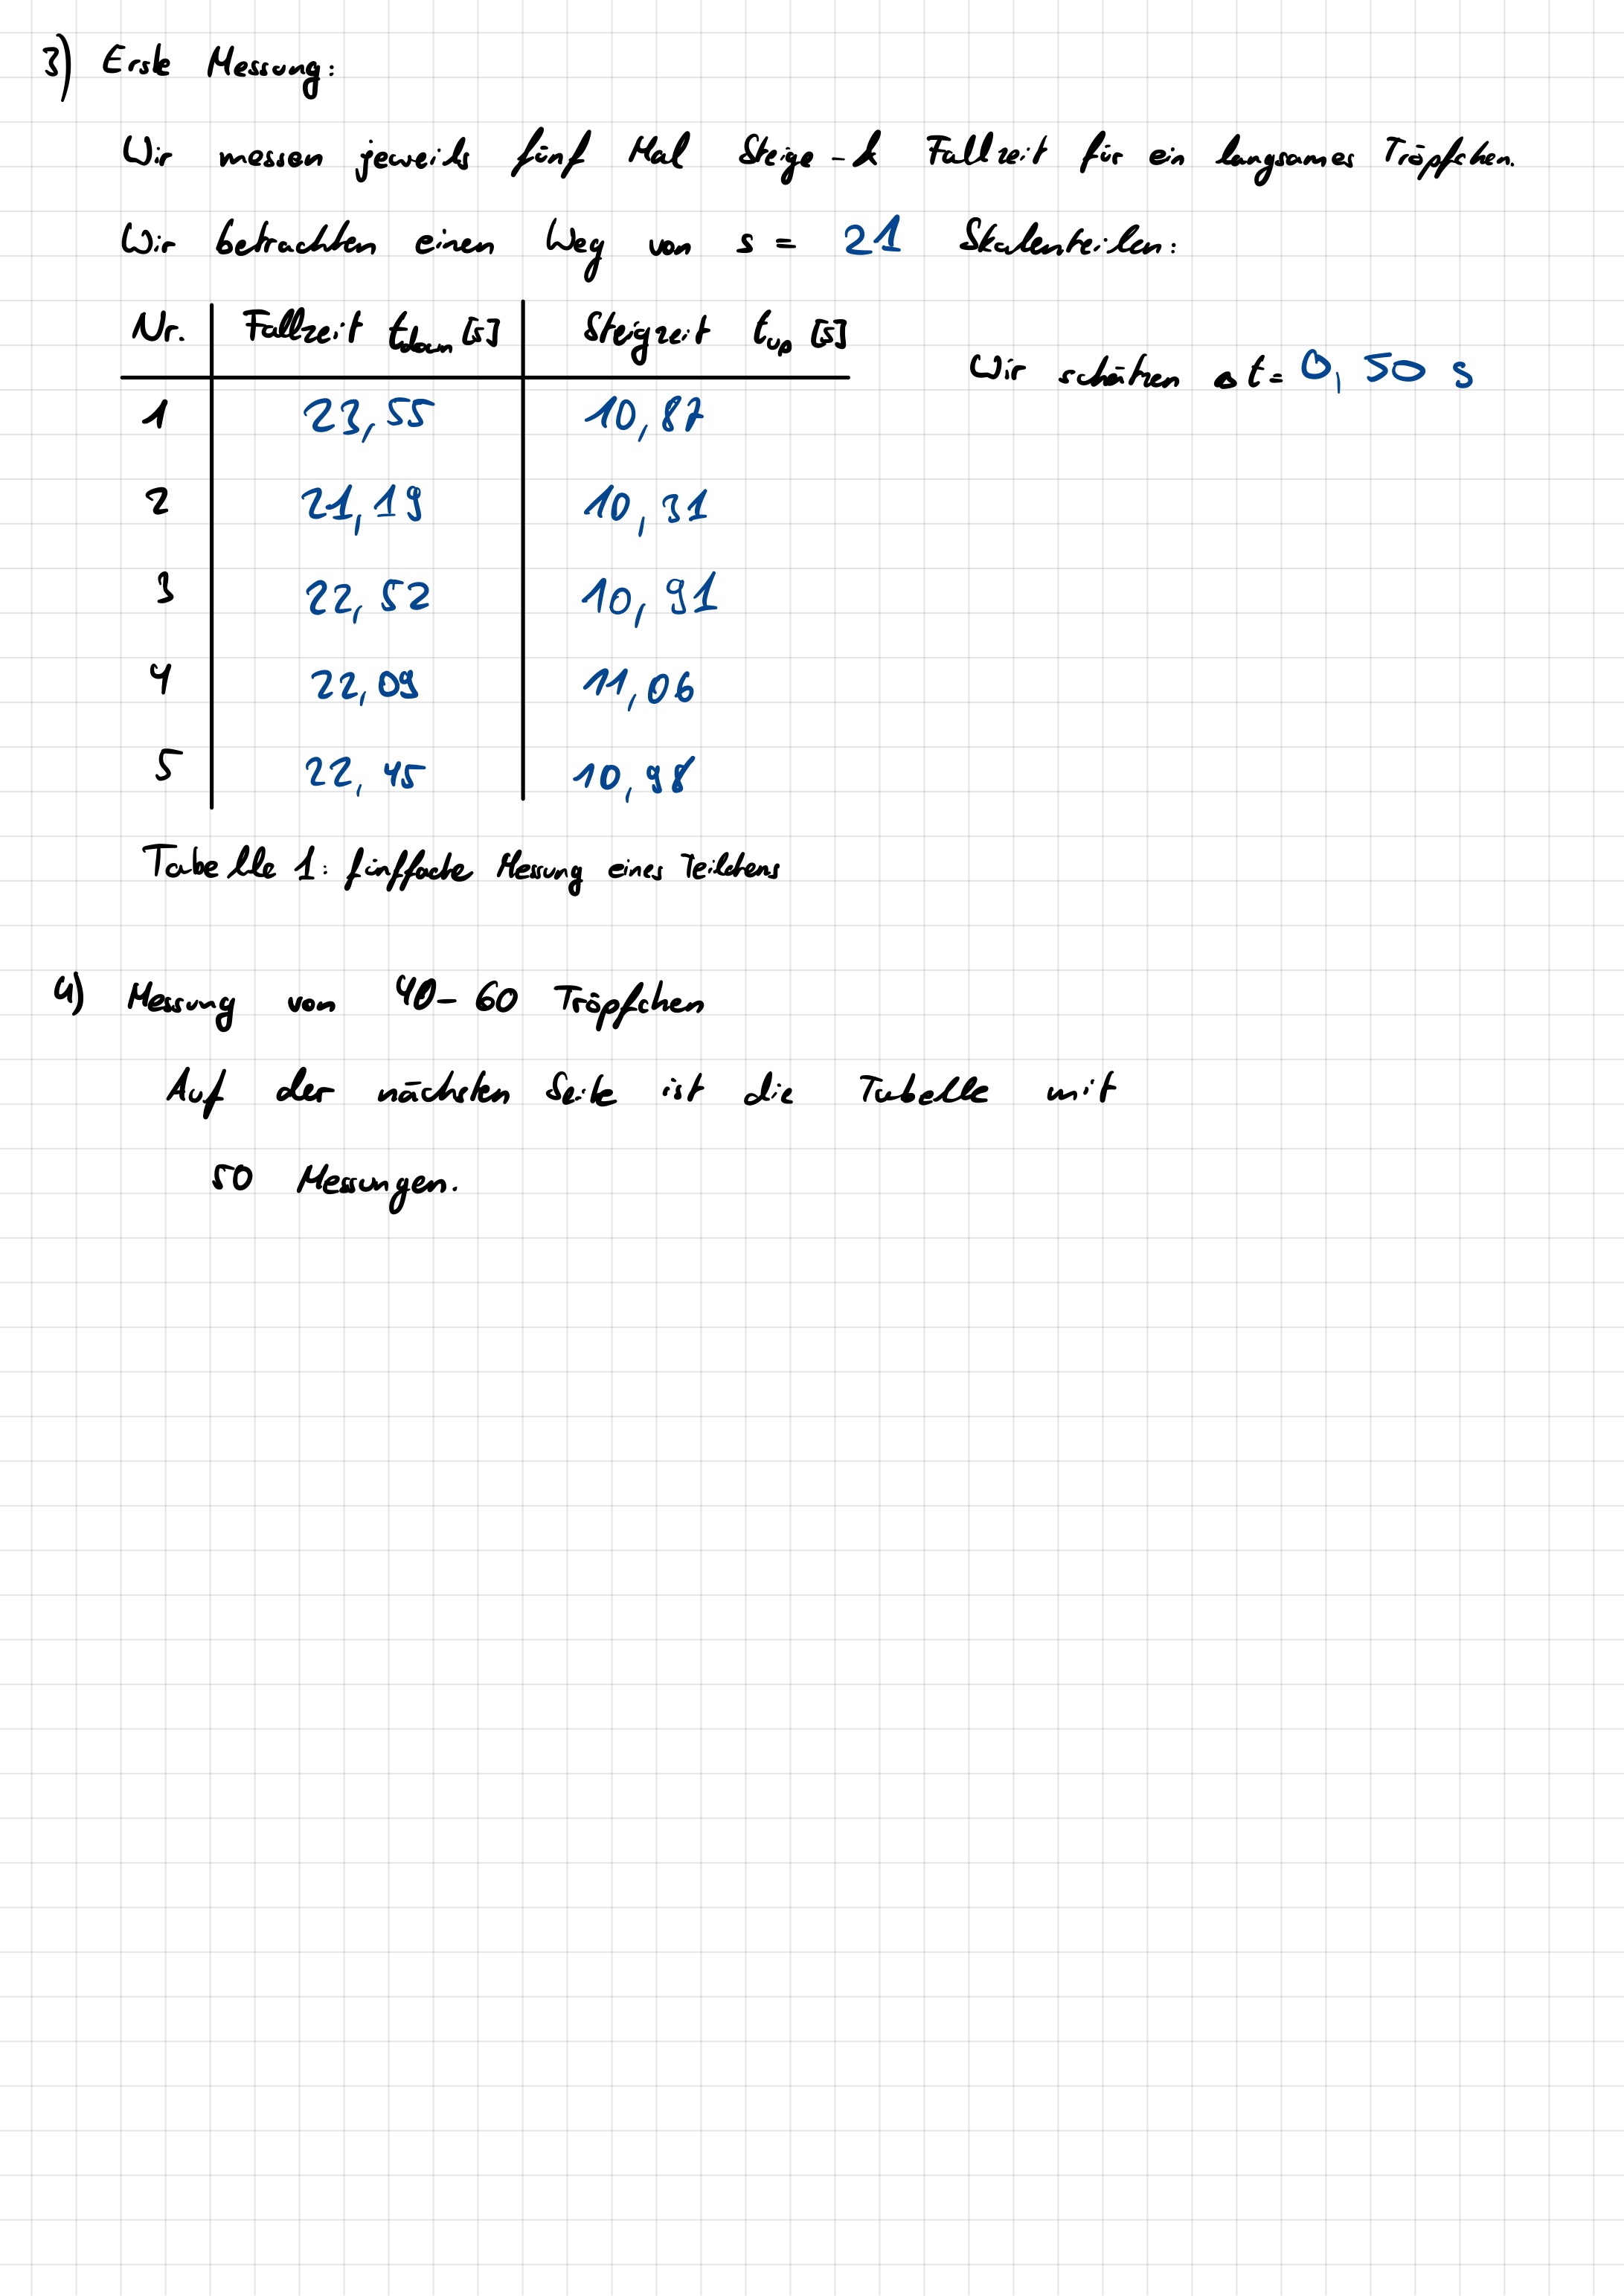 3) Erste Messung:
Wir messen jeweils fünf Mal Steige- & Fallzeit für ein langsames Tröpfchen.
Wir betrachten einen Weg von s = 21 Skalenteilen:
Nr. Fallzeit t_down [s] Steigzeit t_up [s]
Wir schätzen Δt = 0,50 s
1 23,55 10,87
2 21,19 10,31
3 22,52 10,91
4 22,09 11,06
5 22,45 10,98
Tabelle 1: fünffache Messung eines Teilchens
4) Messung von 40-60 Tröpfchen
Auf der nächsten Seite ist die Tabelle mit
50 Messungen.